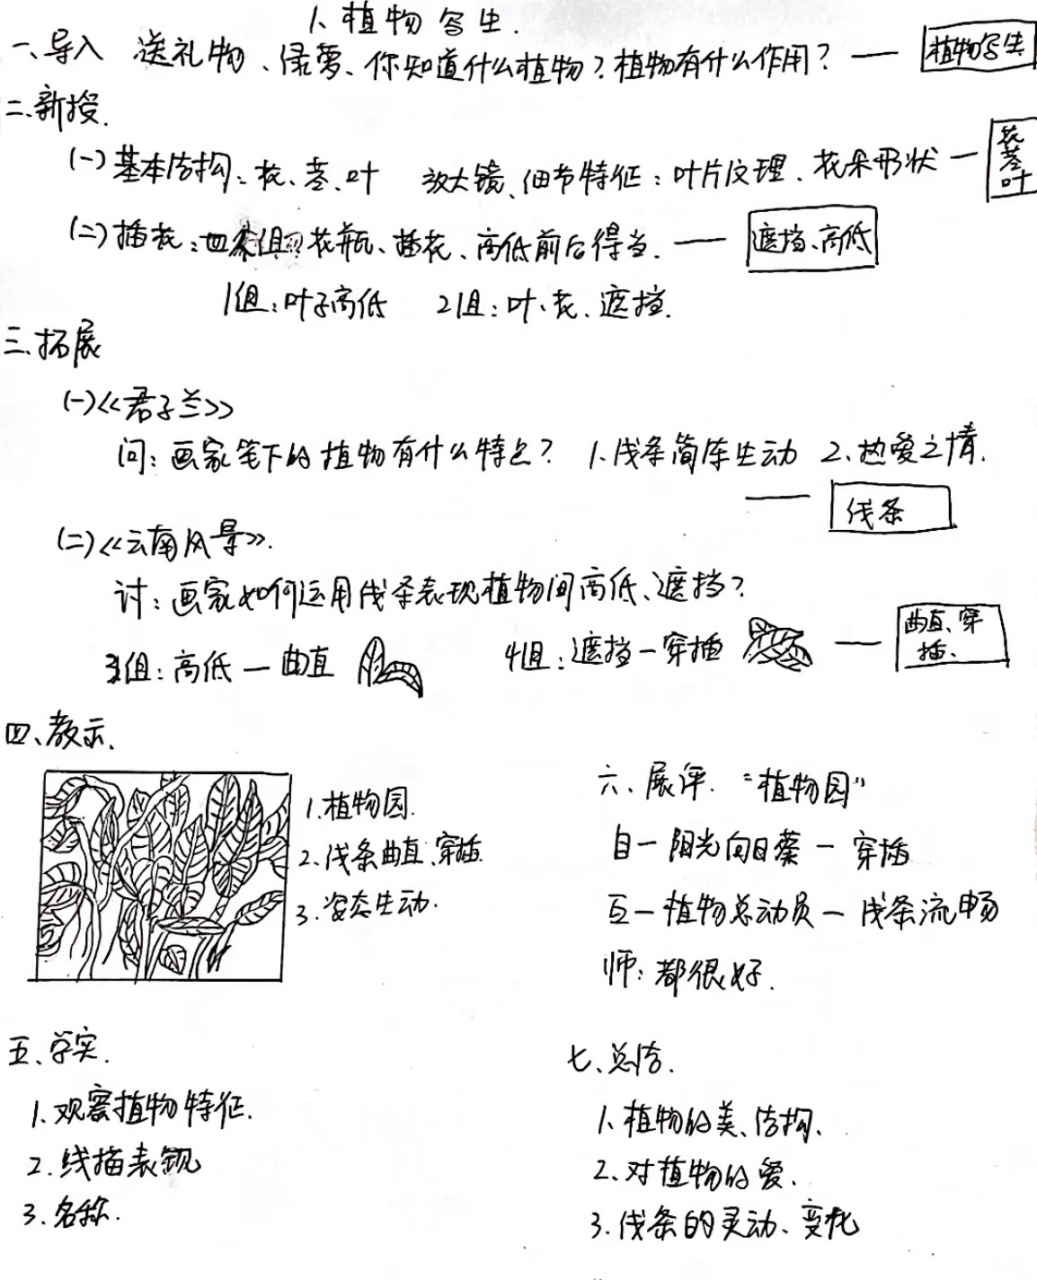 1、植物写生.
一、导入 送礼物、绿萝、你知道什么植物?植物有什么作用? — 植物写生
二、新授.
(一)基本结构:花、茎、叶 放大镜、细节特征:叶片纹理、花朵形状 — 花茎叶
(二)插花:四人组 花瓶、插花、高低前后得当. — 遮挡、高低
1组:叶子高低 2组:叶、花、遮挡.
三、拓展
(一)《君子兰》
问:画家笔下的植物有什么特点? 1.线条简练生动 2.热爱之情.
— 线条
(二)《云南风景》.
讨:画家如何运用线条表现植物间高低、遮挡?
3组:高低—曲直 4组:遮挡—穿插 — 曲直、穿插.
四、教示.
1.植物园.
2.线条曲直、穿插.
3.姿态生动.
五、学实.
1.观察植物特征.
2.线描表现
3.名称.
六、展评. “植物园”
自—阳光向日葵—穿插
互—植物总动员—线条流畅
师:都很好.
七、总结.
1.植物的美、结构.
2.对植物的爱.
3.线条的灵动、变化